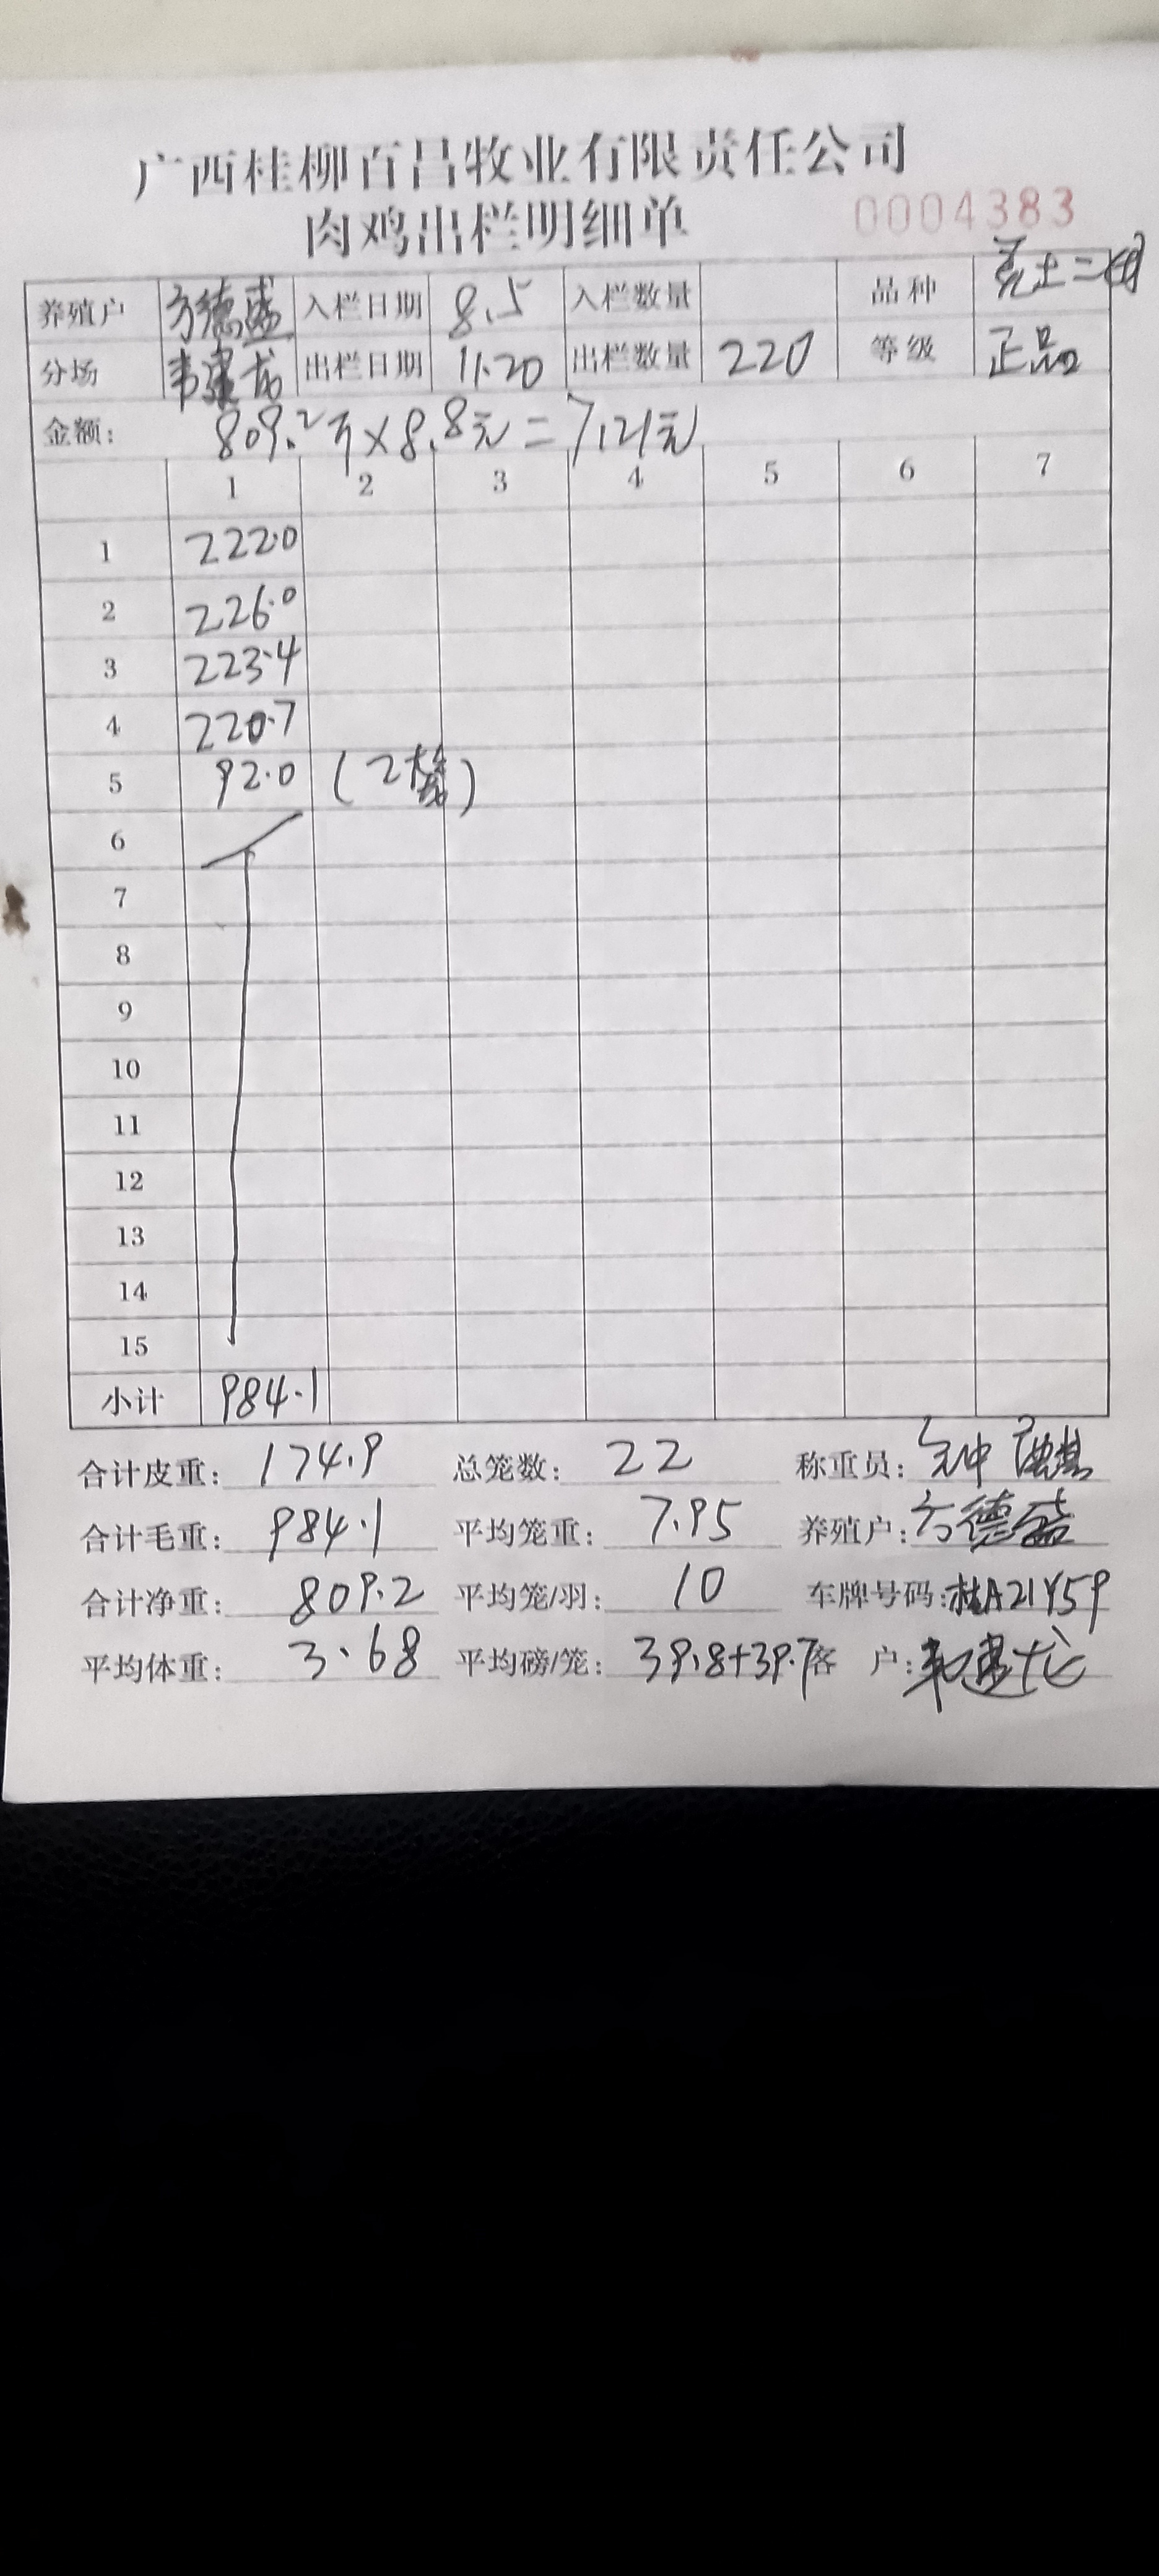 广西桂柳百昌牧业有限责任公司
肉鸡出栏明细单 0004383
养殖户 方德盛 入栏日期 8.5 入栏数量 品种
分场 韦建龙 出栏日期 11.20 出栏数量 220 等级 正品
金额: 809.2斤×8.8元=7121元
1 2 3 4 5 6 7
1 222.0
2 226.0
3 223.4
4 220.7
5 92.0 (2笼)
6
7
8
9
10
11
12
13
14
15
小计 984.1
合计皮重: 174.9 总笼数: 22 称重员:
合计毛重: 984.1 平均笼重: 7.95 养殖户: 方德盛
合计净重: 809.2 平均笼/羽: 10 车牌号码: 桂A21Y59
平均体重: 3.68 平均磅/笼: 39.8+39.7 客户: 韦建龙